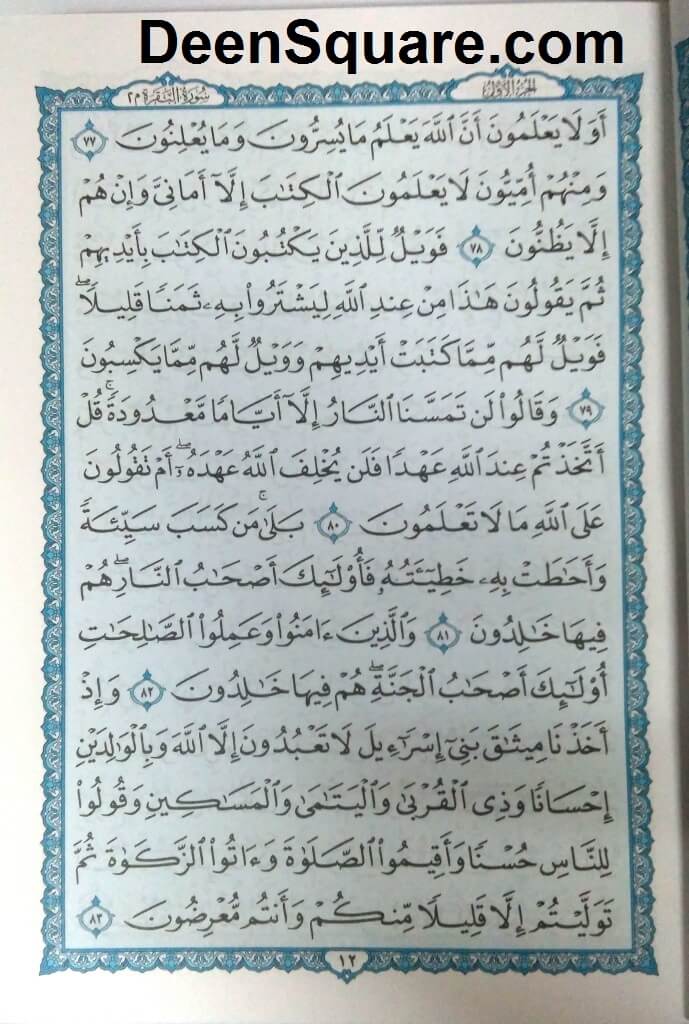 DeenSquare.com
الجزء الأول
سورة البقرة ٢م
أَوَلَا يَعْلَمُونَ أَنَّ ٱللَّهَ يَعْلَمُ مَا يُسِرُّونَ وَمَا يُعْلِنُونَ ٧٧
وَمِنْهُمْ أُمِّيُّونَ لَا يَعْلَمُونَ ٱلْكِتَٰبَ إِلَّآ أَمَانِىَّ وَإِنْ هُمْ
إِلَّا يَظُنُّونَ ٧٨ فَوَيْلٌ لِّلَّذِينَ يَكْتُبُونَ ٱلْكِتَٰبَ بِأَيْدِيهِمْ
ثُمَّ يَقُولُونَ هَٰذَا مِنْ عِندِ ٱللَّهِ لِيَشْتَرُوا۟ بِهِۦ ثَمَنًا قَلِيلًا ۖ
فَوَيْلٌ لَّهُم مِّمَّا كَتَبَتْ أَيْدِيهِمْ وَوَيْلٌ لَّهُم مِّمَّا يَكْسِبُونَ
٧٩ وَقَالُوا۟ لَن تَمَسَّنَا ٱلنَّارُ إِلَّآ أَيَّامًا مَّعْدُودَةً ۚ قُلْ
أَتَّخَذْتُمْ عِندَ ٱللَّهِ عَهْدًا فَلَن يُخْلِفَ ٱللَّهُ عَهْدَهُۥٓ ۖ أَمْ تَقُولُونَ
عَلَى ٱللَّهِ مَا لَا تَعْلَمُونَ ٨٠ بَلَىٰ ۚ مَن كَسَبَ سَيِّئَةً
وَأَحَٰطَتْ بِهِۦ خَطِيٓـَٔتُهُۥ فَأُو۟لَٰٓئِكَ أَصْحَٰبُ ٱلنَّارِ ۖ هُمْ
فِيهَا خَٰلِدُونَ ٨١ وَٱلَّذِينَ ءَامَنُوا۟ وَعَمِلُوا۟ ٱلصَّٰلِحَٰتِ
أُو۟لَٰٓئِكَ أَصْحَٰبُ ٱلْجَنَّةِ ۖ هُمْ فِيهَا خَٰلِدُونَ ٨٢ وَإِذْ
أَخَذْنَا مِيثَٰقَ بَنِىٓ إِسْرَٰٓءِيلَ لَا تَعْبُدُونَ إِلَّا ٱللَّهَ وَبِٱلْوَٰلِدَيْنِ
إِحْسَانًا وَذِى ٱلْقُرْبَىٰ وَٱلْيَتَٰمَىٰ وَٱلْمَسَٰكِينِ وَقُولُوا۟
لِلنَّاسِ حُسْنًا وَأَقِيمُوا۟ ٱلصَّلَوٰةَ وَءَاتُوا۟ ٱلزَّكَوٰةَ ثُمَّ
تَوَلَّيْتُمْ إِلَّا قَلِيلًا مِّنكُمْ وَأَنتُم مُّعْرِضُونَ ٨٣
١٢